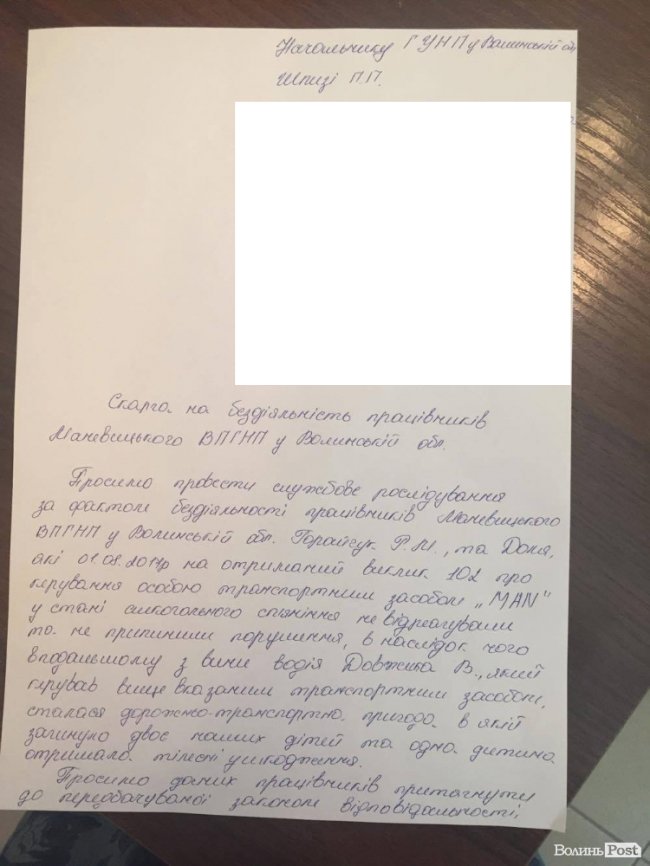 Начальнику ГУНП у Волинській обл
Шпизі П.П.
Скарга на бездіяльність працівників
Маневицького ВПГНП у Волинській обл.
Просимо провести службове розслідування
за фактом бездіяльності працівників Маневицького
ВПГНП у Волинській обл. Р.М., та
які 01.08.2017р на отриманий виклик 102 про
керування особою транспортним засобом „MAN"
у стані алкогольного сп'яніння не відреагували
та не припинили порушення, в наслідок чого
в подальшому з вини водія Довжика В., який
керував вище вказаним транспортним засобом,
сталася дорожно-транспортна пригода в якій
загинуло двоє наших дітей та одна дитина
отримала тілесні ушкодження.
Просимо даних працівників притягнути
до передбачуваної законом відповідальності.
ВолиньPost